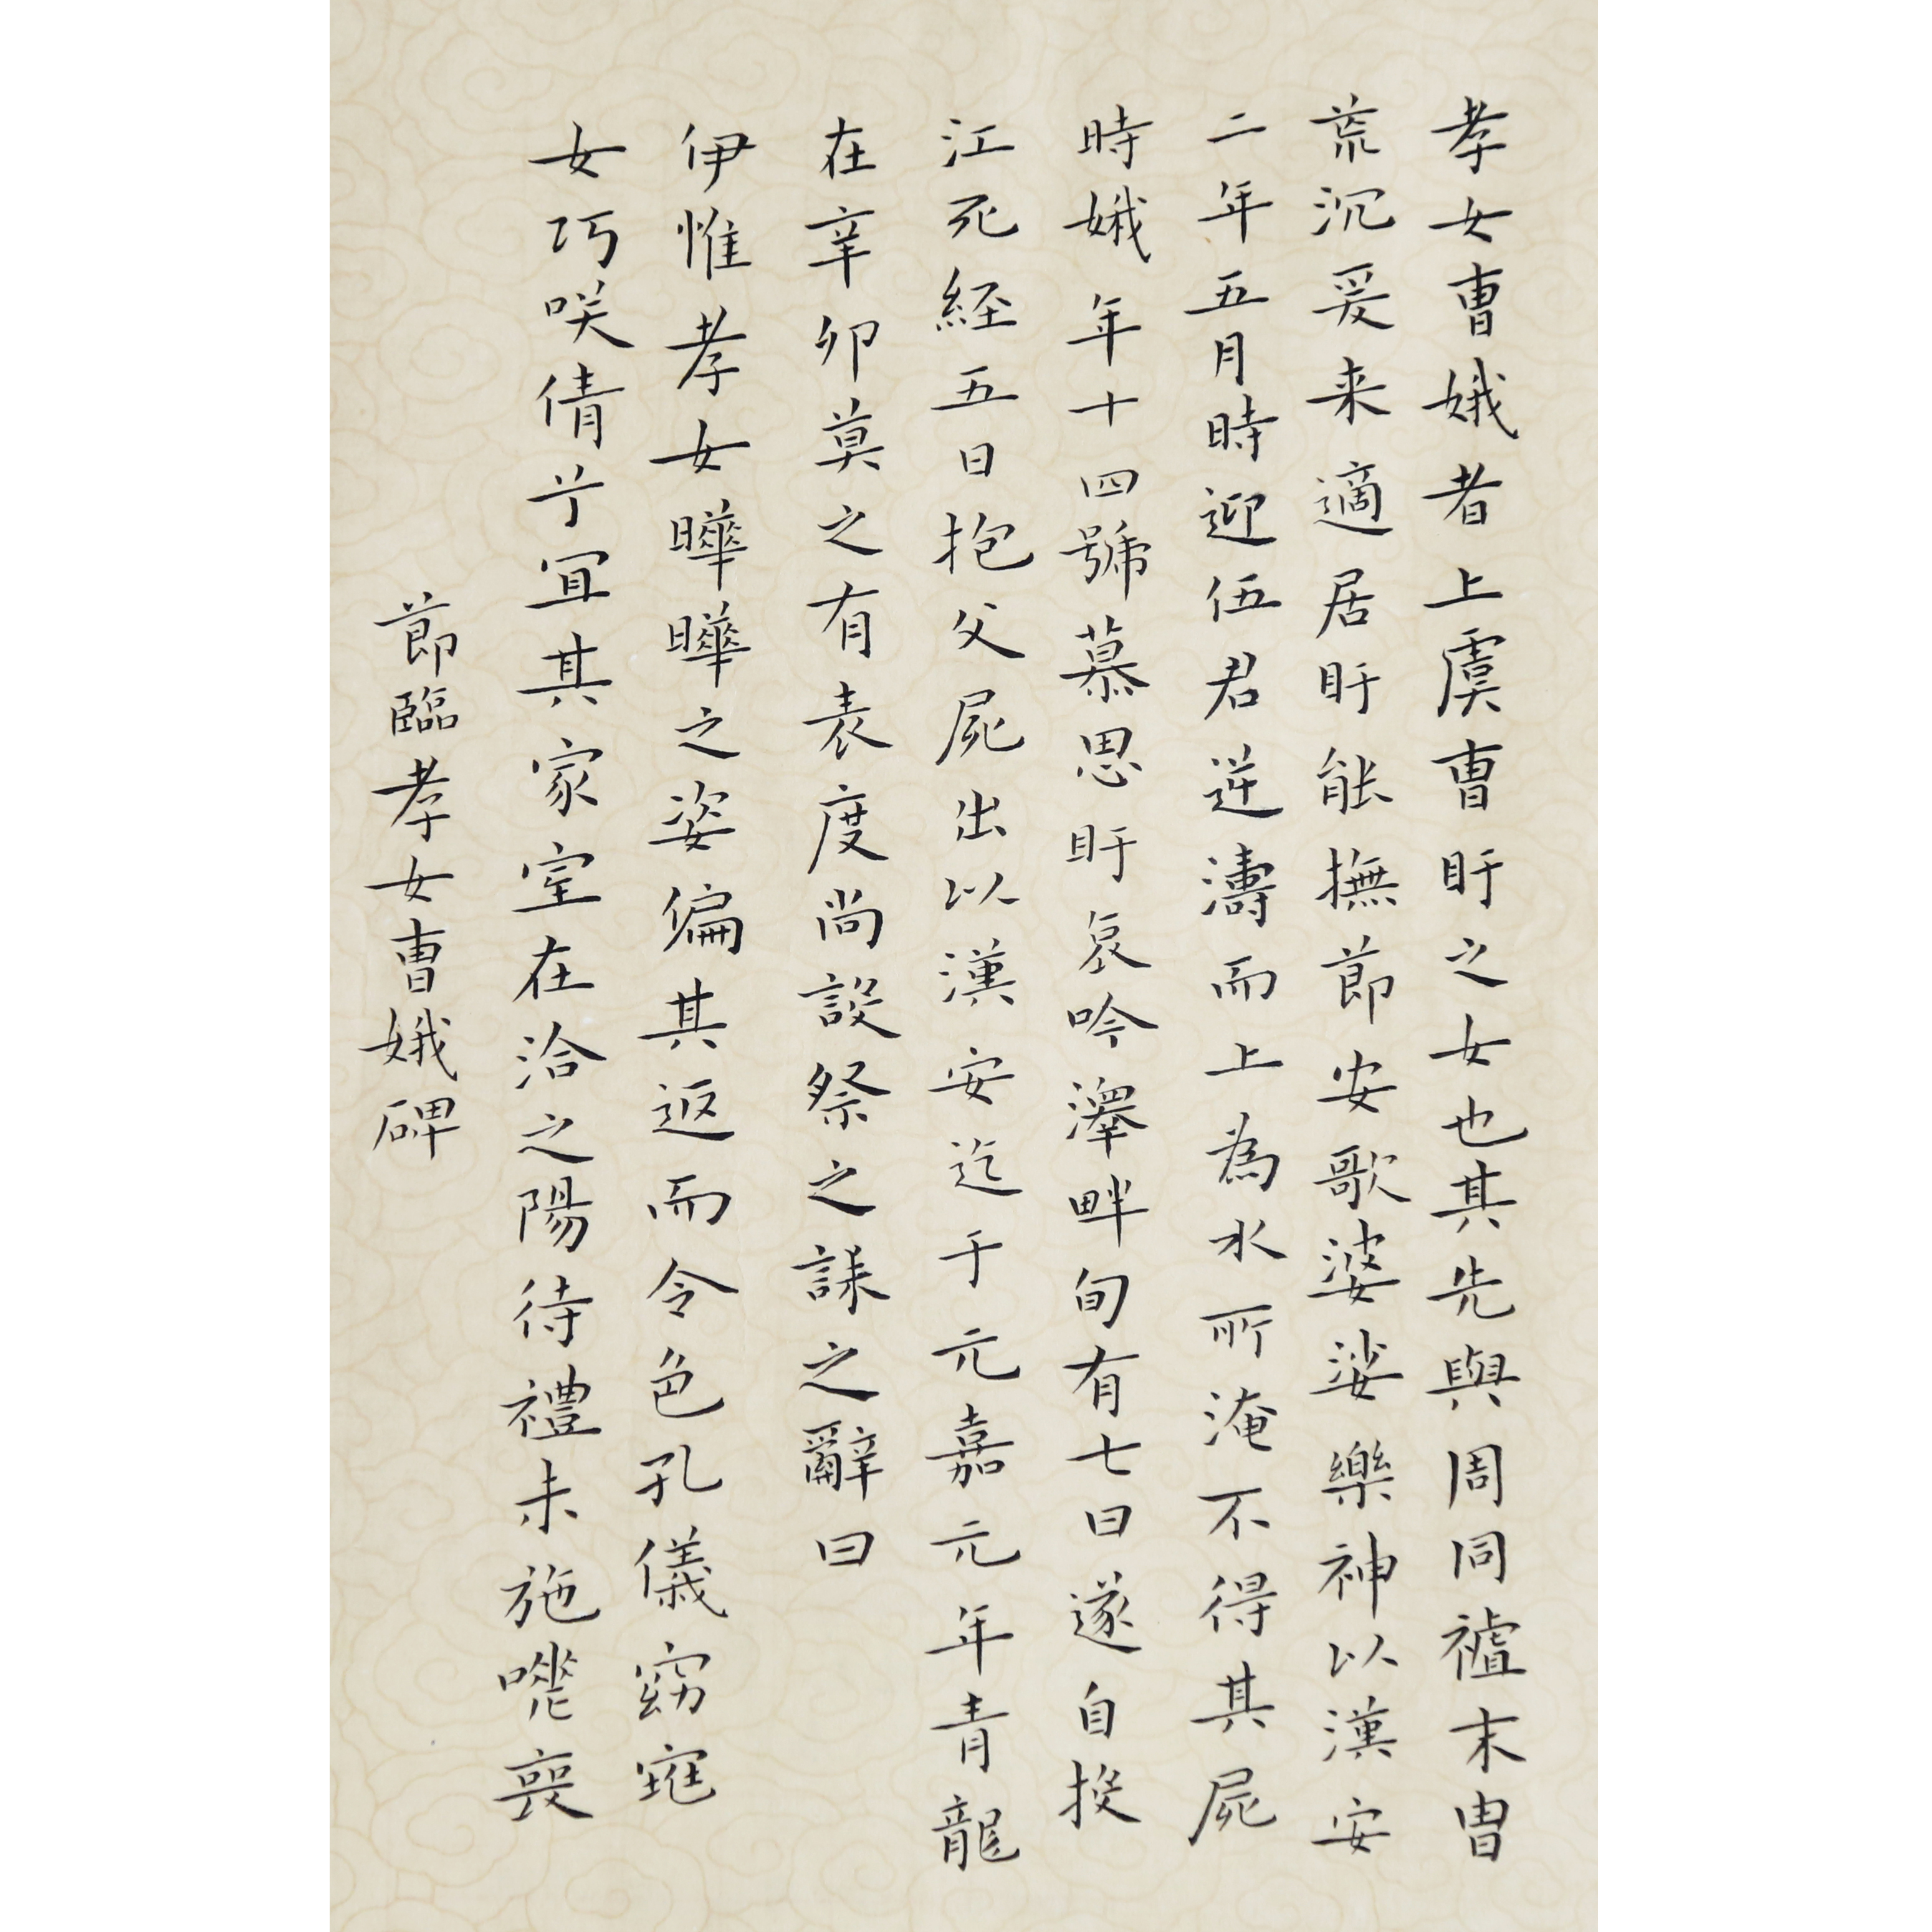 孝女曹娥者上虞曹盱之女也其先與周同禇末冑
荒沉爰来適居盱能撫節安歌婆娑樂神以漢安
二年五月時迎伍君逆濤而上為水所淹不得其屍
時娥年十四號慕思盱哀吟澤畔旬有七日遂自投
江死經五日抱父屍出以漢安迄于元嘉元年青龍
在辛卯莫之有表度尚設祭之誄之辭曰
伊惟孝女曄曄之姿偏其返而令色孔儀窈窕
女巧咲倩兮宜其家室在洽之陽待禮未施嗟喪
節臨孝女曹娥碑